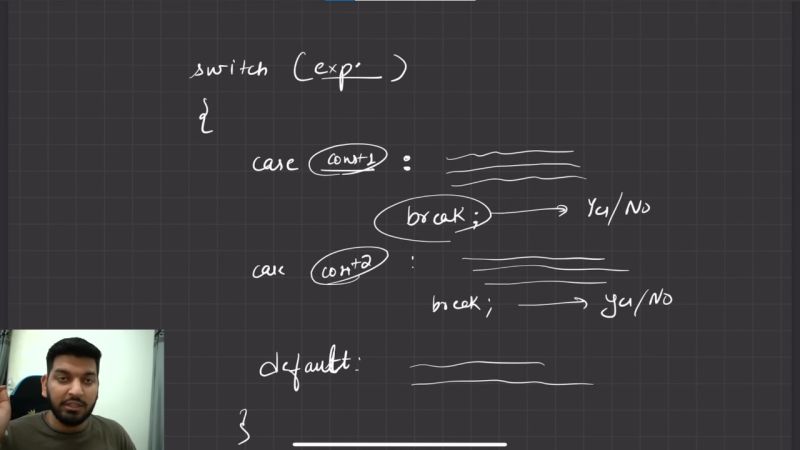 switch (exp.)
{
case const1 :
break; → Yes/No
case const2 :
break; → Yes/No
default:
}